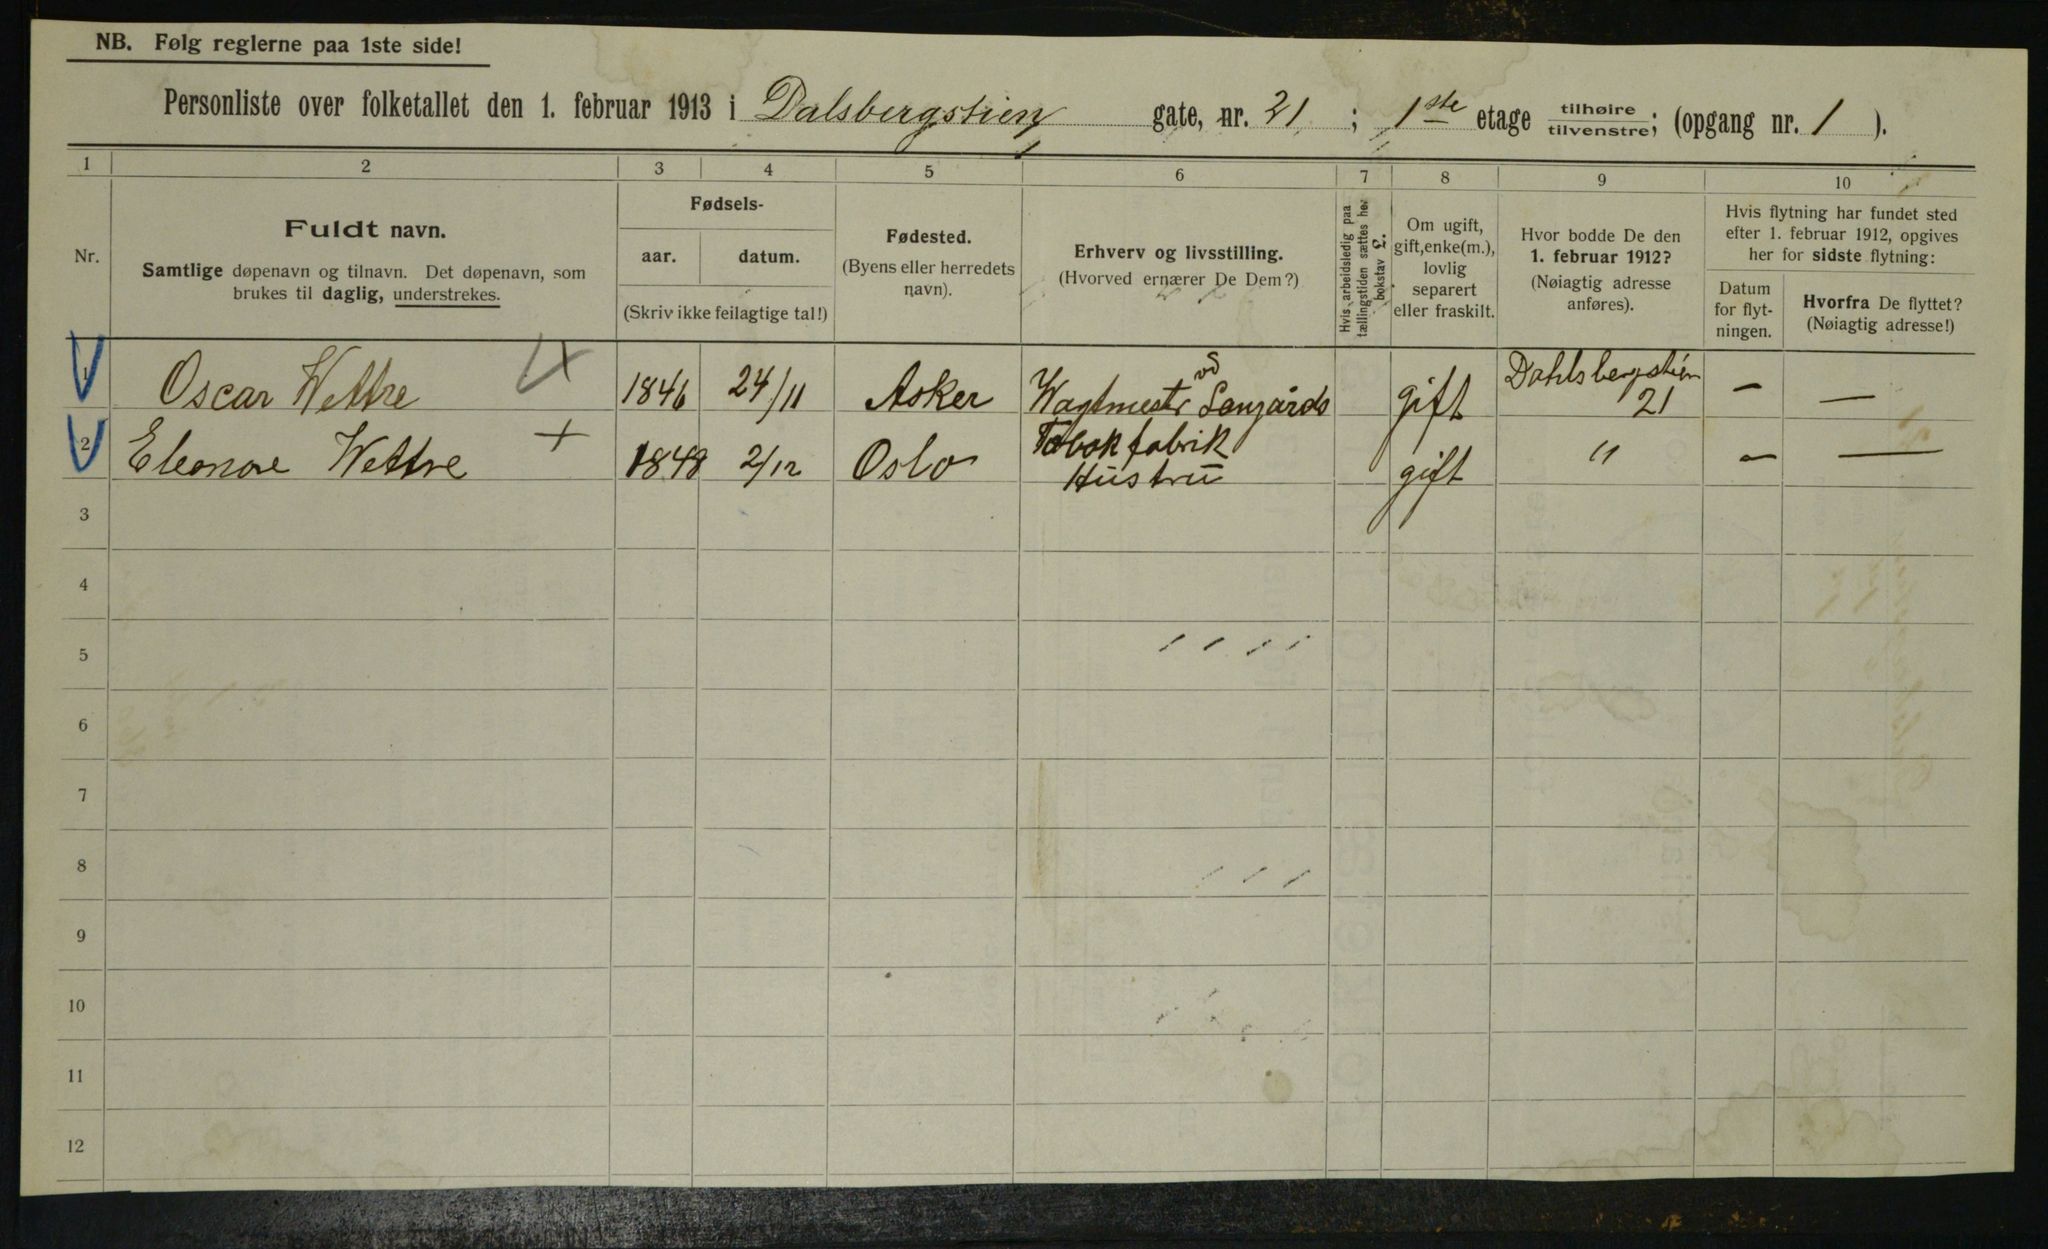 NB. Følg reglerne paa 1ste side!
Personliste over folketallet den 1. februar 1913 i Dalsbergstien gate, nr. 21 ; 1ste etage tilhøire/tilvenstre; (opgang nr. 1 ).
1 2 3 4 5 6 7 8 9 10
Nr.
Fuldt navn.
Samtlige døpenavn og tilnavn. Det døpenavn, som
brukes til daglig, understrekes.
Fødsels-
aar. datum.
(Skriv ikke feilagtige tal!)
Fødested.
(Byens eller herredets
navn).
Erhverv og livsstilling.
(Hvorved ernærer De Dem?)
Hvis arbeidsledig paa
tællingstiden sættes her
bokstav L.
Om ugift,
gift, enke(m.),
lovlig
separert
eller fraskilt.
Hvor bodde De den
1. februar 1912?
(Nøiagtig adresse
anføres).
Hvis flytning har fundet sted
efter 1. februar 1912, opgives
her for sidste flytning:
Datum
for flyt-
ningen.
Hvorfra De flyttet?
(Nøiagtig adresse!)
1 Oscar Wettre 1846 24/11 Asker Wagtmestr vd Langårds gift Dahlsbergstien 21 — —
Tobak fabrik
2 Eleonore Wettre 1848 2/12 Oslo Hustru gift " — —
3
4
5
6
7
8
9
10
11
12